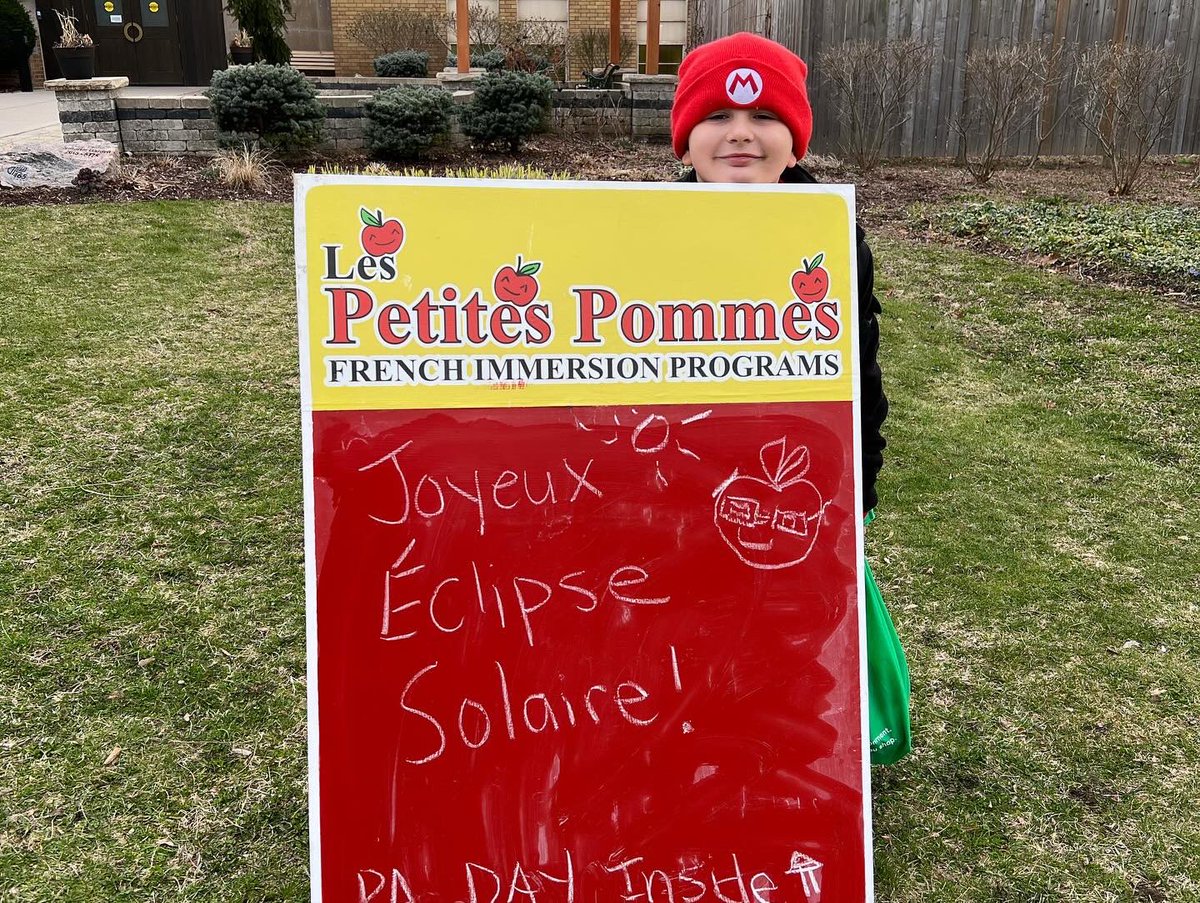 M
Les
Petites Pommes
FRENCH IMMERSION PROGRAMS
Joyeux
Éclipse
Solaire!
PA DAY Inside
shop.